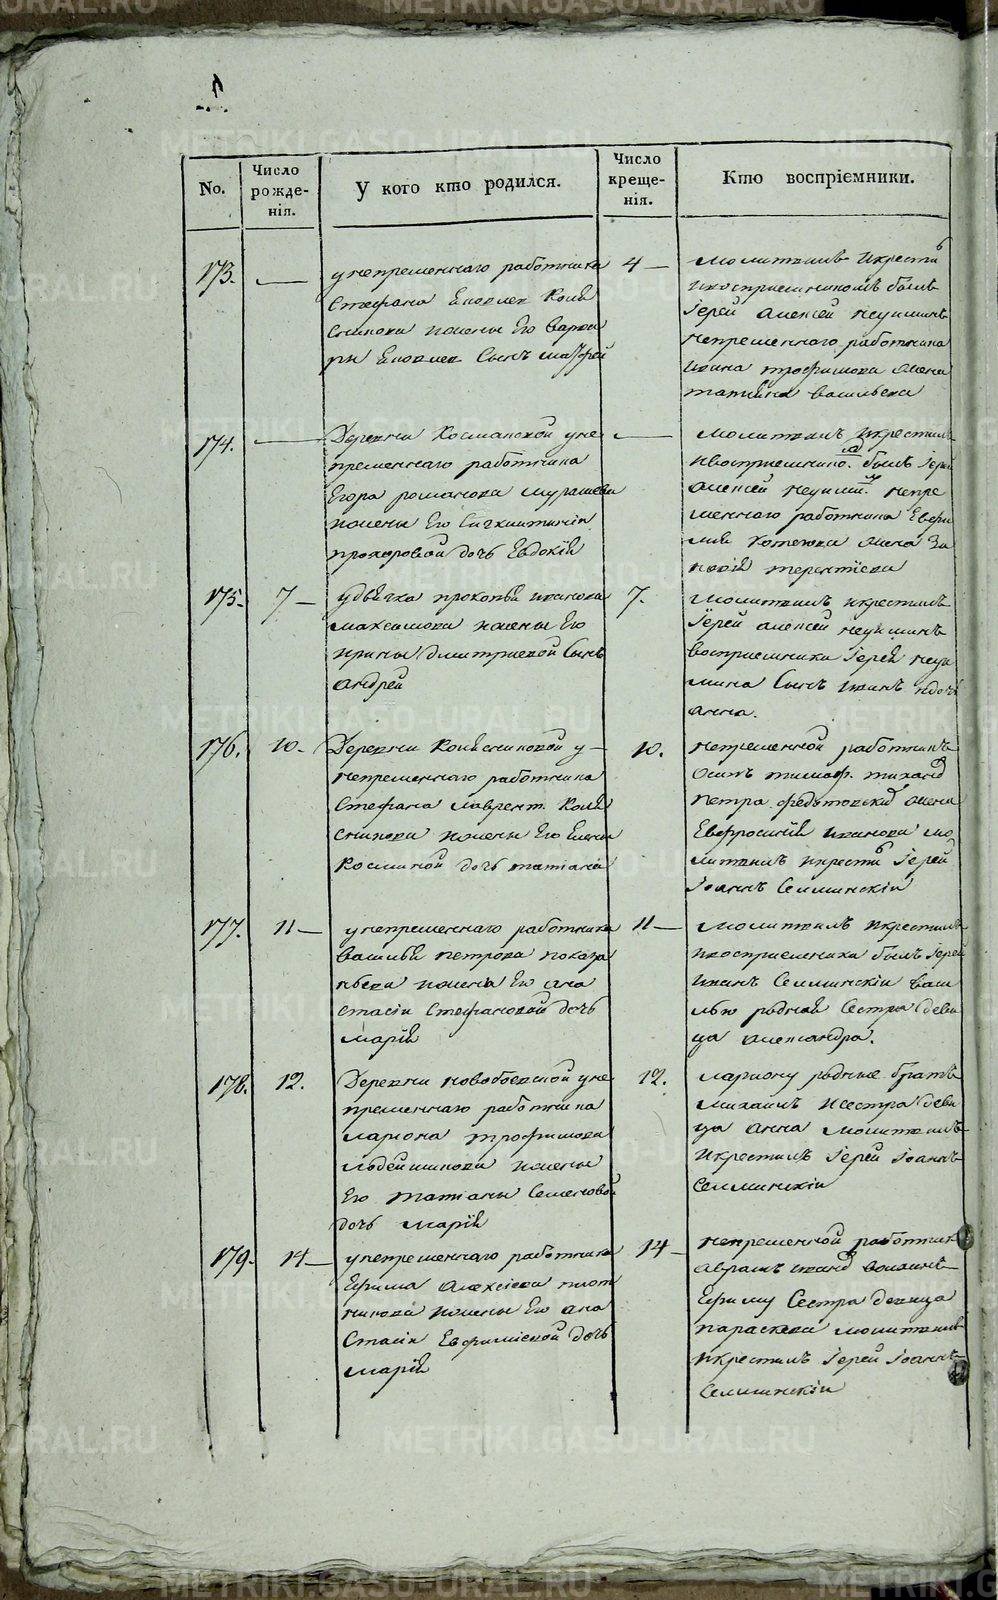 No.
Число рожденія.
У кого кто родился.
Число крещенія.
Кто воспріемники.
173. —
у непременнаго работника
Стефана Яковлев
жены Его Варва
ры Яковлев Сынъ
4 —
молитвилъ и крести
и восприемникомъ былъ
Іерей Алексей Неуиминъ
непременнаго работника
Ивана трофимова жена
татияна васильева
174. —
Деревни Космаковой у не
пременнаго работника
Егора романова мурашева
жены Его
прохоровой дочь Евдокия
—
молитвилъ и крестилъ
и восприемнико. былъ Іерей
Алексей Неуими. непре
меннаго работника Евфи
мия жена За
терентиева
175. 7 —
у дьячка прокопия иванова
максимова жены Его
ирины дмитриевой Сынъ
Андрей
7.
молитвилъ и крестилъ
Іерей Алексей Неуиминъ
восприемники Іерея Неуи
мина Сынъ иванъ и дочь
анна.
176. 10 —
Деревни Колясниковой у —
непременнаго работника
Стефана лаврент. Коля
сникова жены Его Елены
Косминой дочь татиана
10.
непременной работникъ
Осипъ тимоф.
петра жена
Евфросиния иванова мо
литвилъ и крести Іерей
Іоаннъ Селминскіи
177. 11 —
у непременнаго работника
василия петрова
жены Его ана
стасіи Стефановой дочь
Мария
11 —
молитвилъ и крестилъ
и восприемника былъ Іерей
иванъ Селминскіи васи
лью родная Сестра деви
ца александра.
178. 12.
Деревни новобоевской у не
пременнаго работника
лариона трофимова
жены
Его татианы Семеновой
дочь мария
12.
лариону родные братъ
михаилъ и сестра деви
ца анна молитвилъ
и крестилъ Іерей Іоаннъ
Селминскіи
179. 14 —
у непременнаго работника
Ефима Алексіева плот
никова жены Его ана
стасии Евфимиевой дочь
мария
14 —
непременной работник
аврамъ
Ефиму Сестра девица
параскева молитвилъ
и крестилъ Іерей Іоаннъ
Селминскіи
METRIKI.GASO-URAL.RU